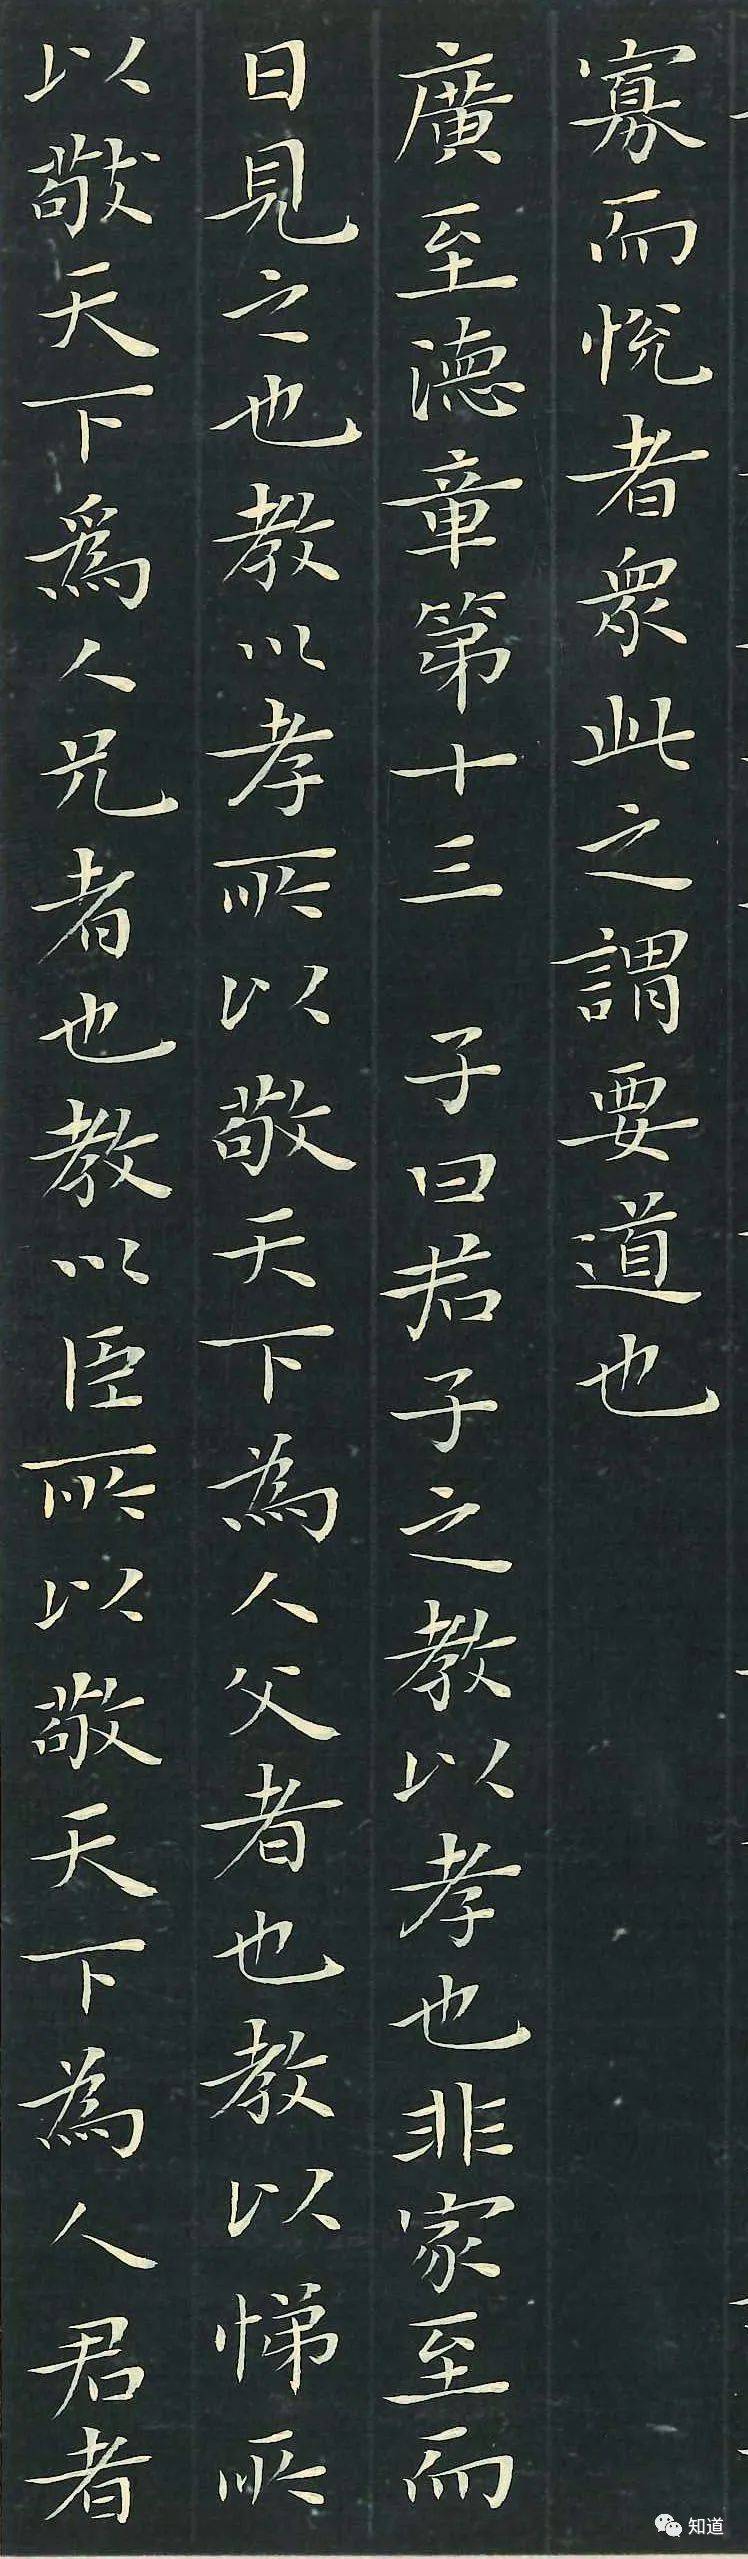 寡而悅者衆此之謂要道也
廣至德章第十三 子曰君子之教以孝也非家至而
日見之也教以孝所以敬天下為人父者也教以悌所
以敬天下爲人兄者也教以臣所以敬天下為人君者
知道